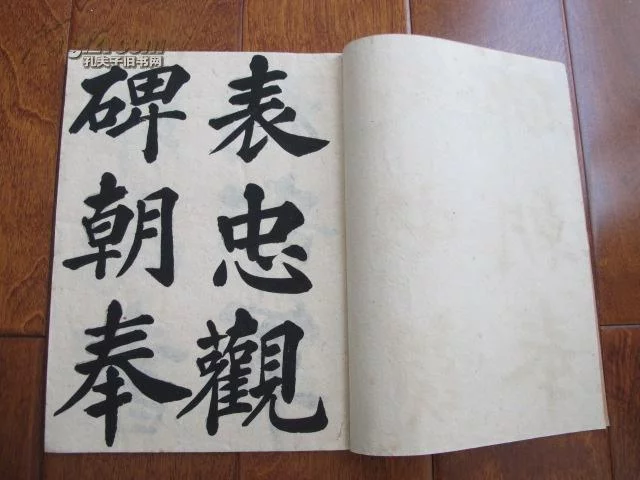 表忠觀
碑朝奉
孔夫子旧书网